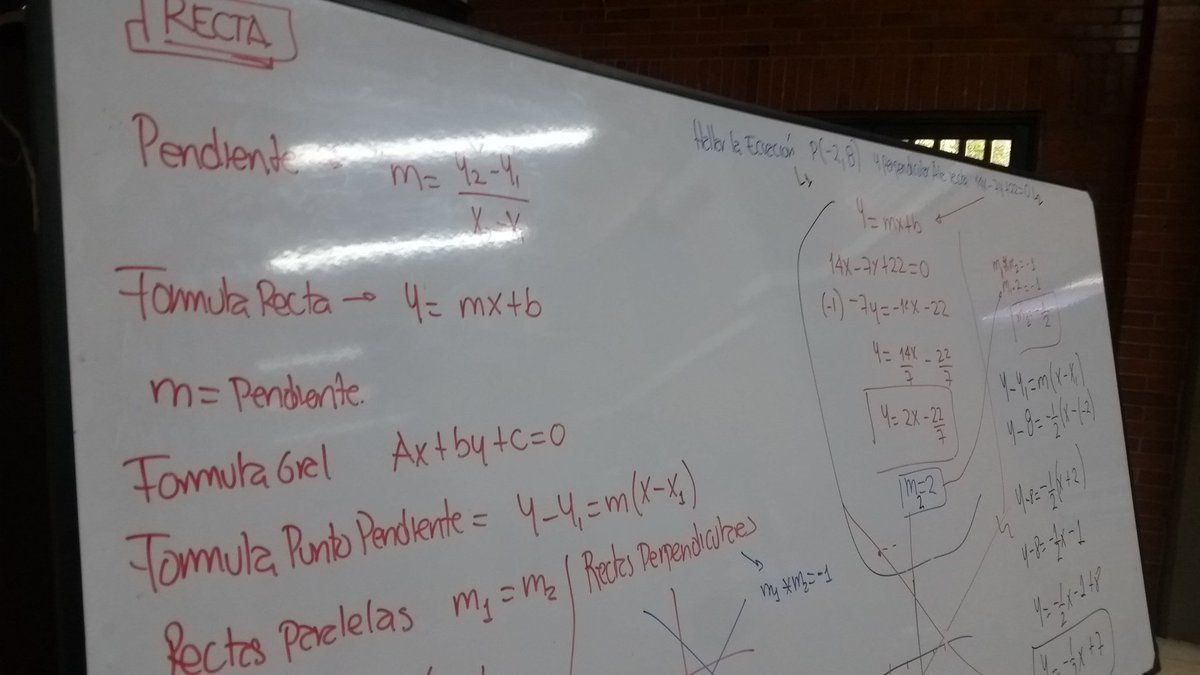 RECTA
Pendiente
m= y2-y1
x2-x1
Formula Recta → y= mx+b
m= Pendiente.
Formula Grel Ax+by+c=0
Formula Punto Pendiente= y-y1=m(x-x1)
Rectas Paralelas m1=m2
Rectas Perpendiculares
m1*m2=-1
Hallar la Ecuación P(-2,8) y perpendicular 14x-7y+22=0
y=mx+b
14x-7y+22=0
(-1) -7y=-14x-22
y= 14x/7 - 22/7
y=2x-22/7
m=2
m1*m2=-1
m·2=-1
y-y1=m(x-x1)
y-8=-1/2(x-(-2)
y-8=-1/2(x+2)
y-8=-1/2x-1
y=-1/2x-1+8
y=-1/2x+7